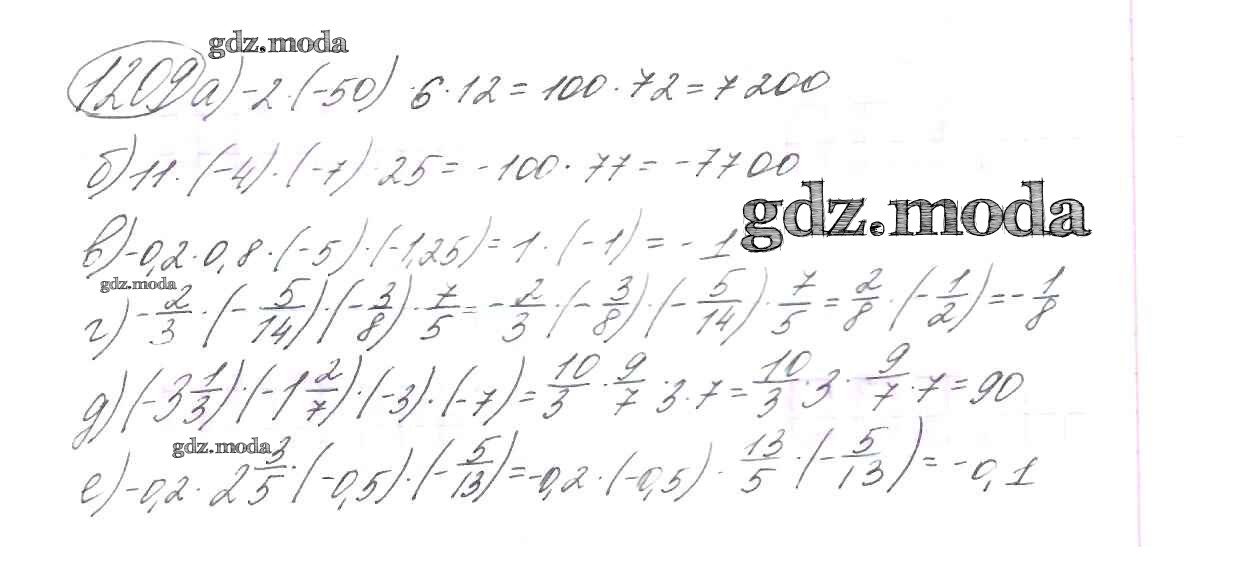 gdz.moda
1209 а) -2·(-50)·6·12=100·72=7200
б) 11·(-4)·(-7)·25=-100·77=-7700
gdz.moda
в) -0,2·0,8·(-5)·(-1,25)=1·(-1)=-1
gdz.moda
г) -2/3·(-5/14)·(-3/8)·7/5=-2/3·(-3/8)·(-5/14)·7/5=2/8·(-1/2)=-1/8
д) (-3 1/3)·(-1 2/7)·(-3)·(-7)=10/3·9/7·3·7=10/3·3·9/7·7=90
gdz.moda
е) -0,2·2 3/5·(-0,5)·(-5/13)=-0,2·(-0,5)·13/5·(-5/13)=-0,1